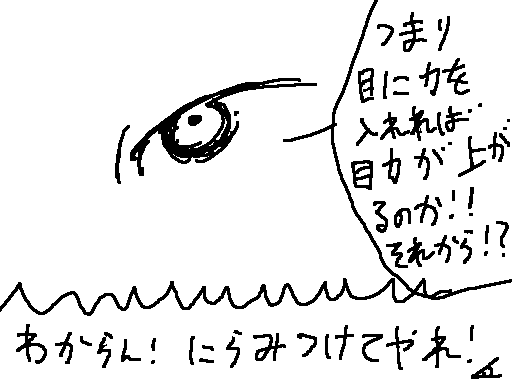 つまり
目に力を
入れれば…
目力が上が
るのか!!
それから!?
わからん! にらみつけてやれ!